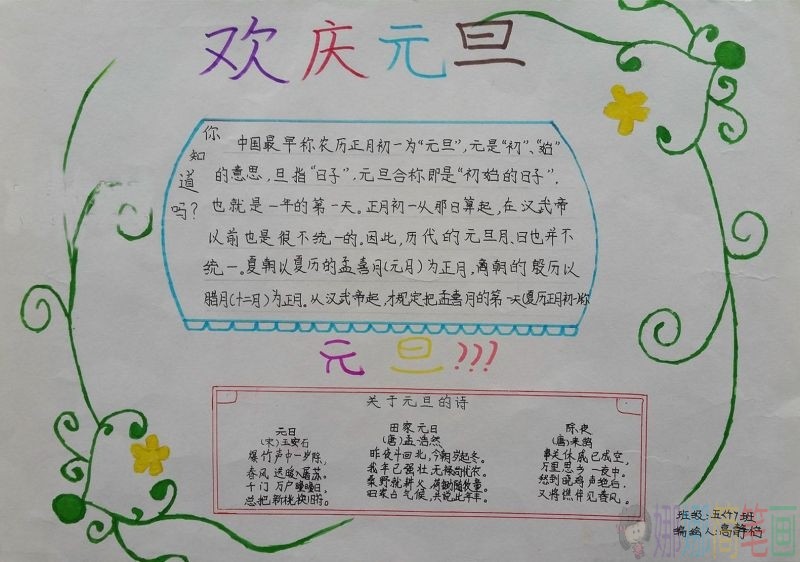 欢庆元旦
你知道吗?
中国最早称农历正月初一为“元旦”,元是“初”、“始”
的意思,旦指“日子”.元旦合称即是“初始的日子”.
也就是一年的第一天。正月初一从那日算起,在汉武帝
以前也是很不统一的。因此,历代的元旦月、日也并不
统一。夏朝以夏历的孟喜月(元月)为正月,商朝的殷历以
腊月(十二月)为正月。从汉武帝起,才规定把孟喜月的第一天(夏历正月初一)称
元旦???
关于元旦的诗
元日
(宋)王安石
爆竹声中一岁除,
春风送暖入屠苏。
千门万户曈曈日,
总把新桃换旧符。
田家元日
(唐)孟浩然
昨夜斗回北,今朝岁起东。
我年已强壮,无禄尚忧农。
桑野就耕父,荷锄随牧童。
田家占气候,共说此年丰。
除夜
(唐)来鹄
事关休戚已成空,
万里思乡一夜中。
愁到晓鸡声绝后,
又将憔悴见春风。
班级:五(4)班
编绘人:高静怡
娜娜简笔画